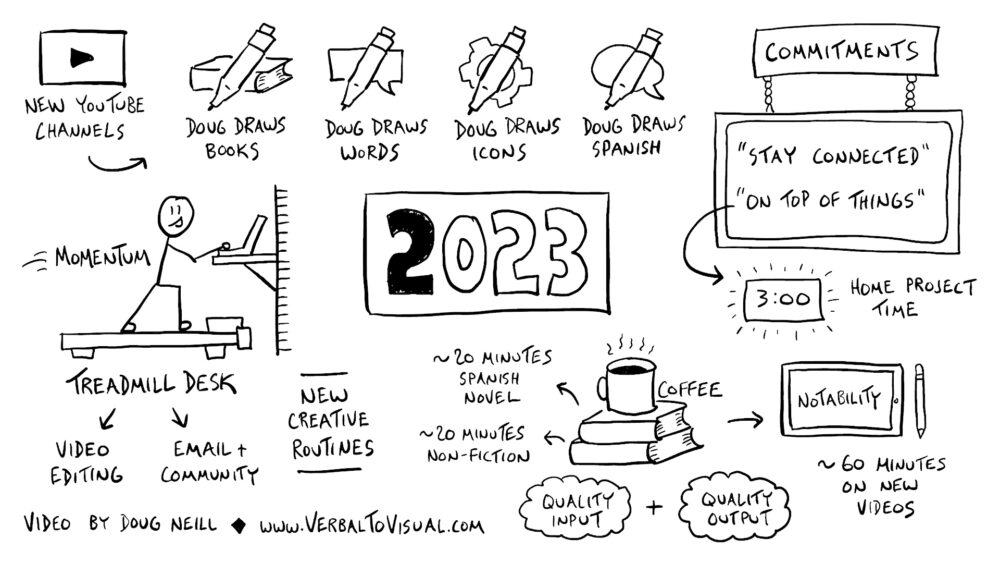 NEW YOUTUBE
CHANNELS
DOUG DRAWS
BOOKS
DOUG DRAWS
WORDS
DOUG DRAWS
ICONS
DOUG DRAWS
SPANISH
COMMITMENTS
"STAY CONNECTED"
"ON TOP OF THINGS"
3:00
HOME PROJECT
TIME
2023
MOMENTUM
TREADMILL DESK
VIDEO
EDITING
EMAIL +
COMMUNITY
NEW
CREATIVE
ROUTINES
~20 MINUTES
SPANISH
NOVEL
~20 MINUTES
NON-FICTION
COFFEE
NOTABILITY
~60 MINUTES
ON NEW
VIDEOS
QUALITY
INPUT
+
QUALITY
OUTPUT
VIDEO BY DOUG NEILL ◆ WWW.VERBALTOVISUAL.COM